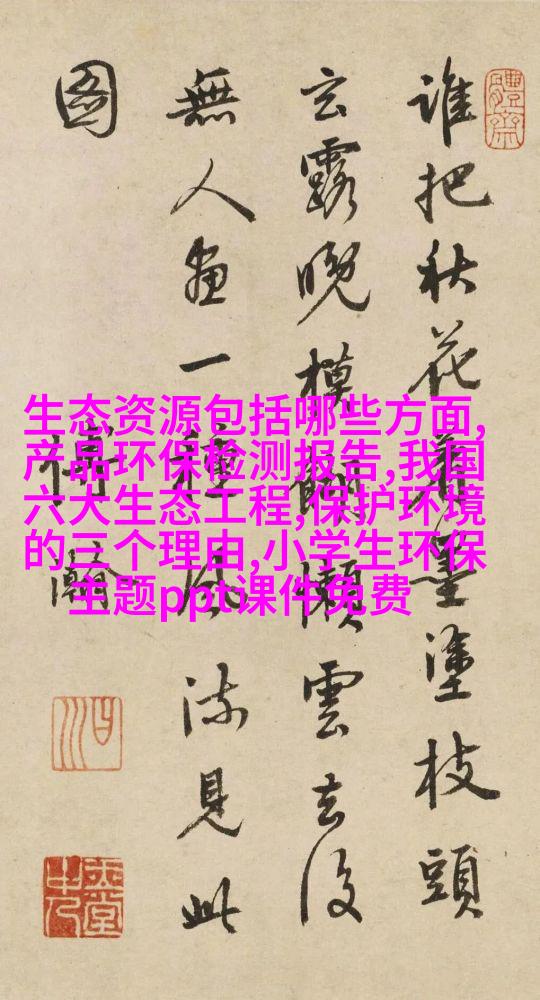 誰把秋花着墨塗枝頭
玄露晚模糊懶雲去後
無人畫一種風流見此
圖
傅瀚
體齋
生态资源包括哪些方面,
产品环保检测报告,我国
六大生态工程,保护环境
的三个理由,小学生环保
主题ppt课件免费